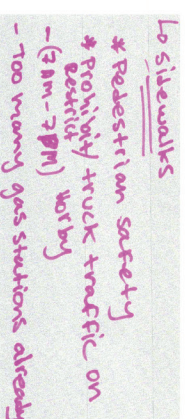 ↳ sidewalks
* Pedestrian safety
* Prohibit/Restrict truck traffic on
- (7AM-7PM) Norby
- Too many gas stations already